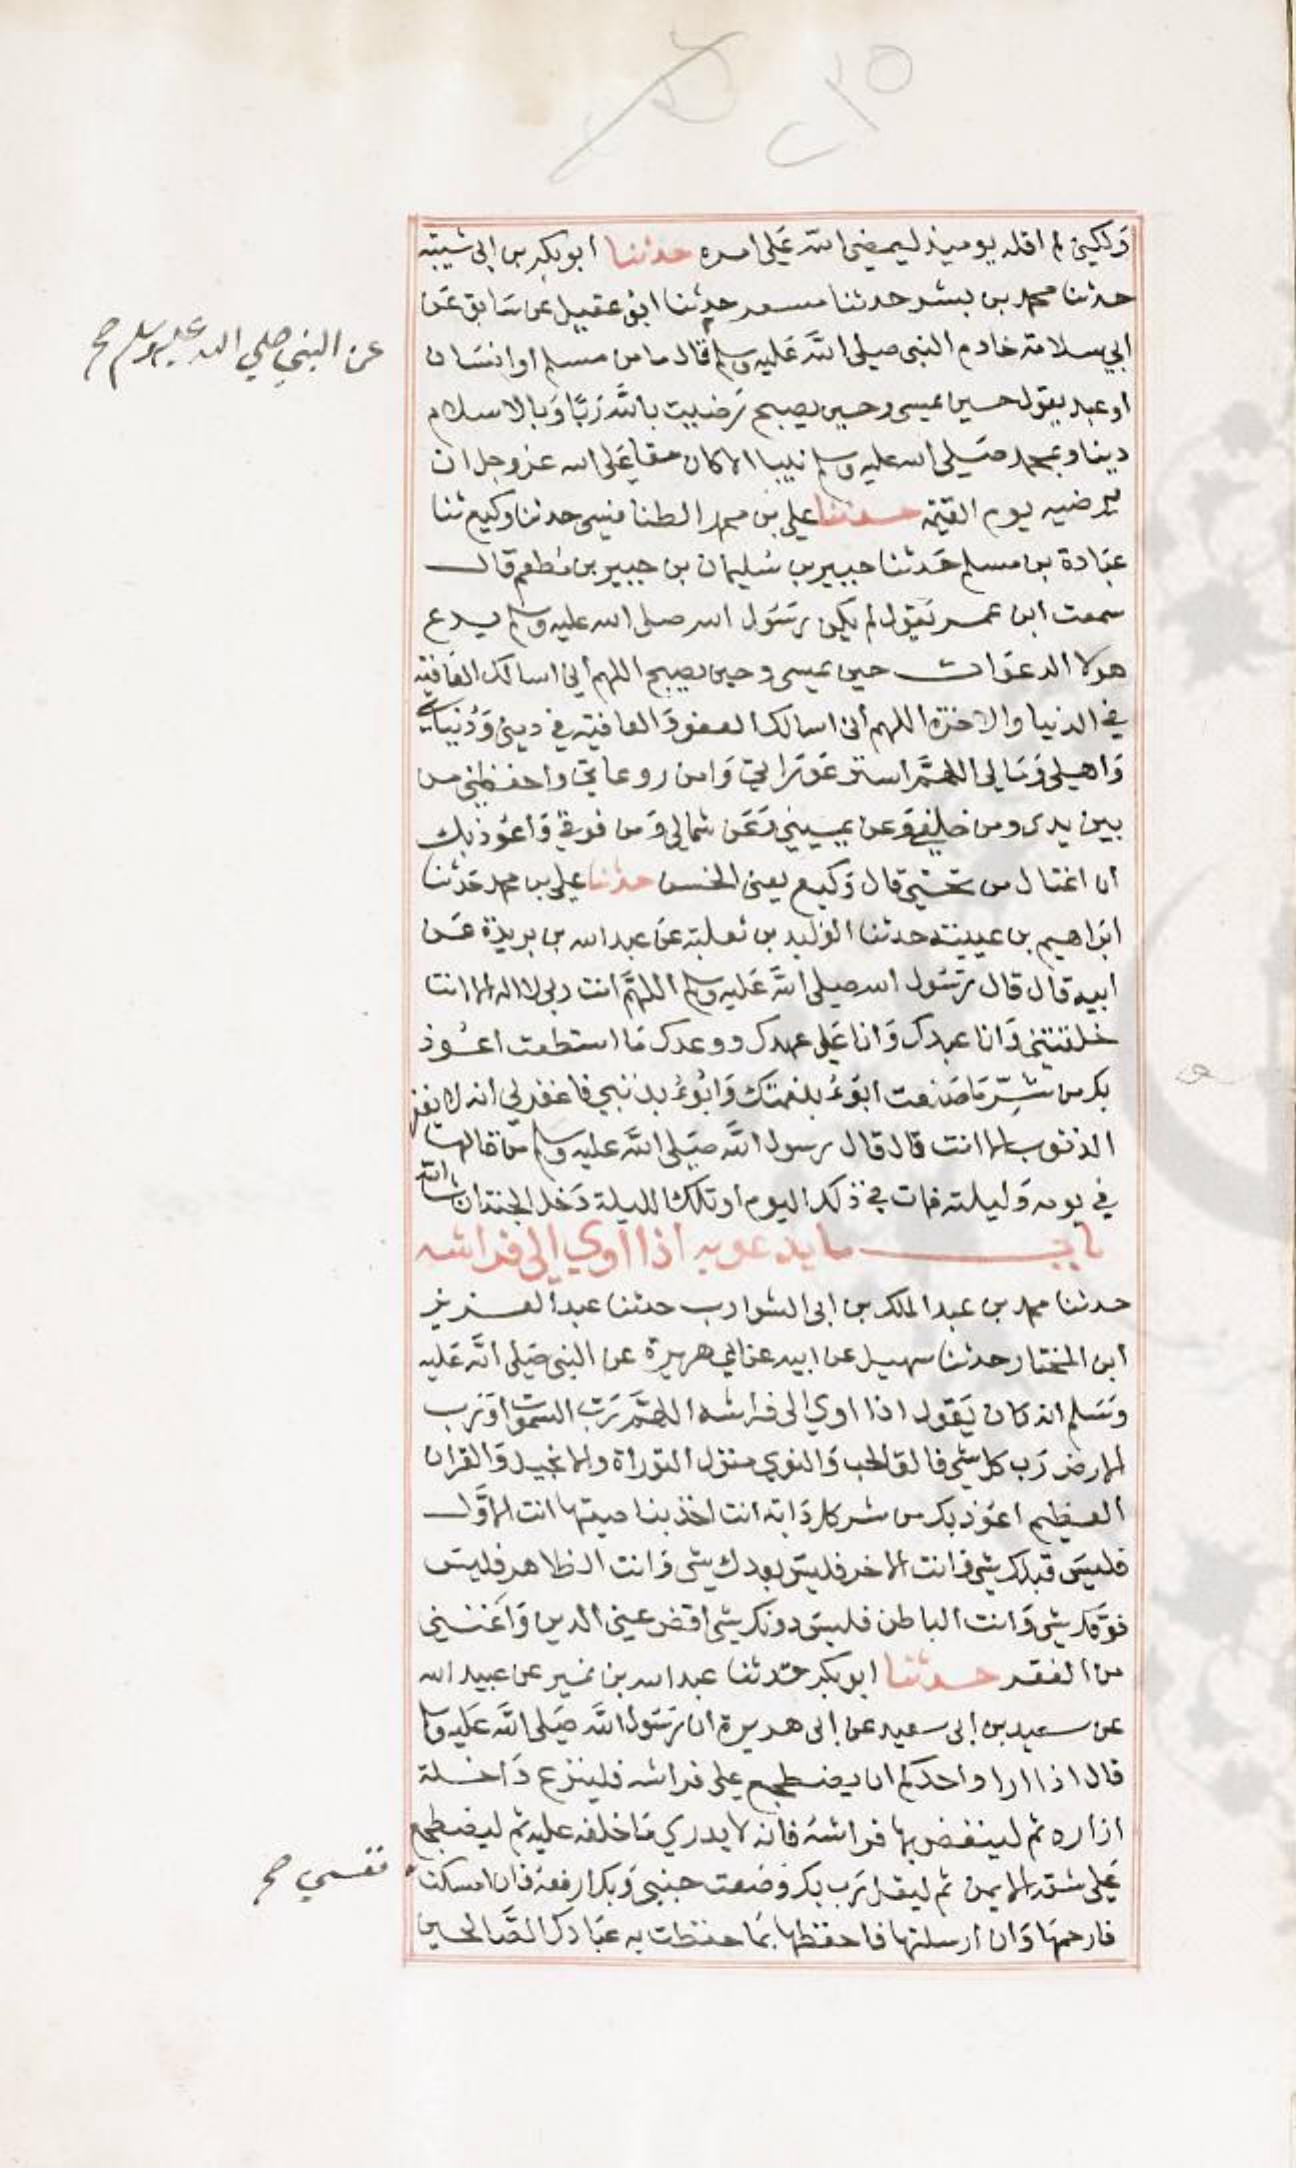 ٥١٠
وَلكني لم اقله يوميذ ليمضي الله عَلى امره حدثنا ابوبكر بن ابي شيبته
حدثنا محمد بن بشر حدثنا مسعر حدثنا ابو عقيل عن سَابق عَن
ابي سلامة خادم النبي صيلى اللَّه عَليه وسلم قال ما من مسلم او انسَان
عن النبي صلي الله عليه وسلم صح
او عبد يقول حين يمسى وحين يصبح رَضيت باللَّه رَبَّا وَبالاسلام
دينا وبمحمد صَيلى الله عليه وسلم نبيا الا كان حقا عَلى الله عز وجل ان
يرضيه يوم القيمة حدثنا علي بن محمد الطنافسي حدثنا وكيع ثنا
عبَادة بن مسلم حَدثنا جبير بن سُليمان بن جبير بن مُطعم قال
سمعت ابن عمر يَقول لم يكن رسَوُل الله صلى الله عليه وسلم يدع
هولا الدعوَات حين يميسى وحين يصبح اللهم اني اسالك العَافية
في الدنيا والاخرَة اللهم انى اسالك العفو وَالعافية في دينى وَدُنياي
وَاهيلى وَمَالي اللهمَّ استر عَورَاتي وَامن روعاتي واحفظني من
بين يدى ومن خلفي وَعن يميني وَعَن شمالي وَمن فوقي وَاعوُذ بك
ان اغتال من تحتي قال وَكيع يعنى الخسف حدثنا علي بن محمد حَدثنا
ابرَاهيم بن عيينته حدثنا الوَليد بن ثعلبته عَن عبد الله بن بريدَة عَن
ابيه قال قال رسَوُل الله صيلى اللَّه عَليه وسلم اللهمَّ انت ربى لا اله الا انت
خلقتني وَانا عبدك وَانا عَلى عهدك ووعدك مَا استطعت اعوُذ
بك من شَرّ مَا صَنعت ابوَءُ بنعمتك وَابُوءُ بذنبي فاغفر لي انه لا يغفر
الذنوب الا انت قال قال رسول اللَّه صَيلى اللَّه عليه وسلم مَن قالها
في يومه وَليلته فمات في ذلك اليوم او تلك الليلة دَخل الجنة ان شا الله
باب ما يدعو به اذا اوي الي فراشه
حدثنا محمد بن عبد الملك بن ابى الشوارب حدثنا عبد العزيز
ابن المختار حدثنا سهيل عن ابيه عن ابي هريرة عن النبى صَيلى اللَّه عَليه
وسَلم انه كان يَقول اذا اوي الى فراشه اللهمَّ رَبَّ السموَات وَرب
الارض رَب كل شي فالق الحب وَالنوي منزل التورَاة والانجيل وَالقران
العظيم اعوُذ بك من شر كل دَابة انت اخذ بناصيتها انت الاوَّل
فليسَ قبلك شي وَانت الاخر فليسَ بعدك شي وَانت الظاهر فليسَ
فوقَك شي وَانت الباطن فليسَ دونك شي اقض عيني الدين وَاغنني
من الفقر حدثنا ابوبكر حَدثنا عبد الله بن نمير عن عبيد الله
عن سعيد بن ابى سعيد عن ابى هريرة ان رسَوُل اللَّه صَيلى اللَّه عَليه وسلم
قال اذا اراد احدكم ان يضطجع على فراشه فلينزع دَاخلة
ازاره ثم لينفض بها فراشهُ فانه لا يدري مَا خلفه عليه ثم ليضطجع
عَلى شقه الايمن ثم ليقل رَب بك وَضعت جنبي وَبك ارفعه فان امسكت
نفسي صح
فارحمهَا وَان ارسلتها فاحفظها بمَا حفظت به عبَادك الصَّالحين